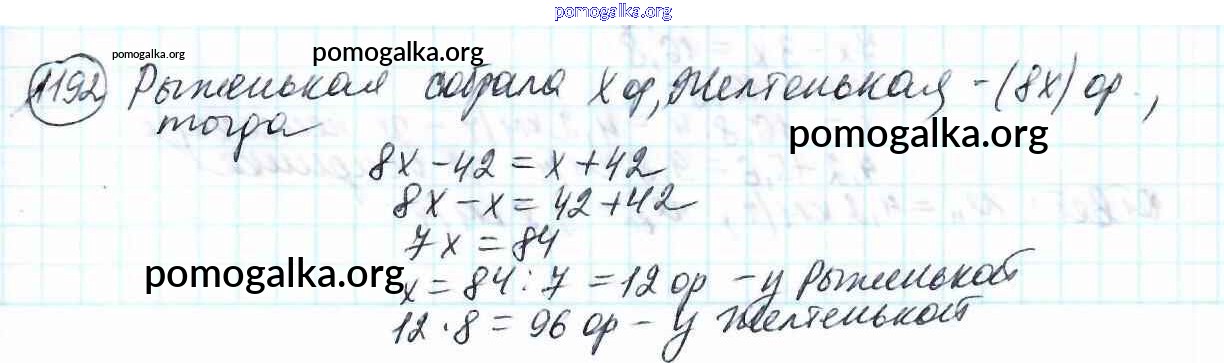 pomogalka.org
pomogalka.org
pomogalka.org
1192 Рыженькая собрала x ор, Желтенькая - (8x) ор.,
тогда
pomogalka.org
8x - 42 = x + 42
8x - x = 42 + 42
7x = 84
pomogalka.org
x = 84 : 7 = 12 ор - у Рыженькой
12 · 8 = 96 ор - у Желтенькой